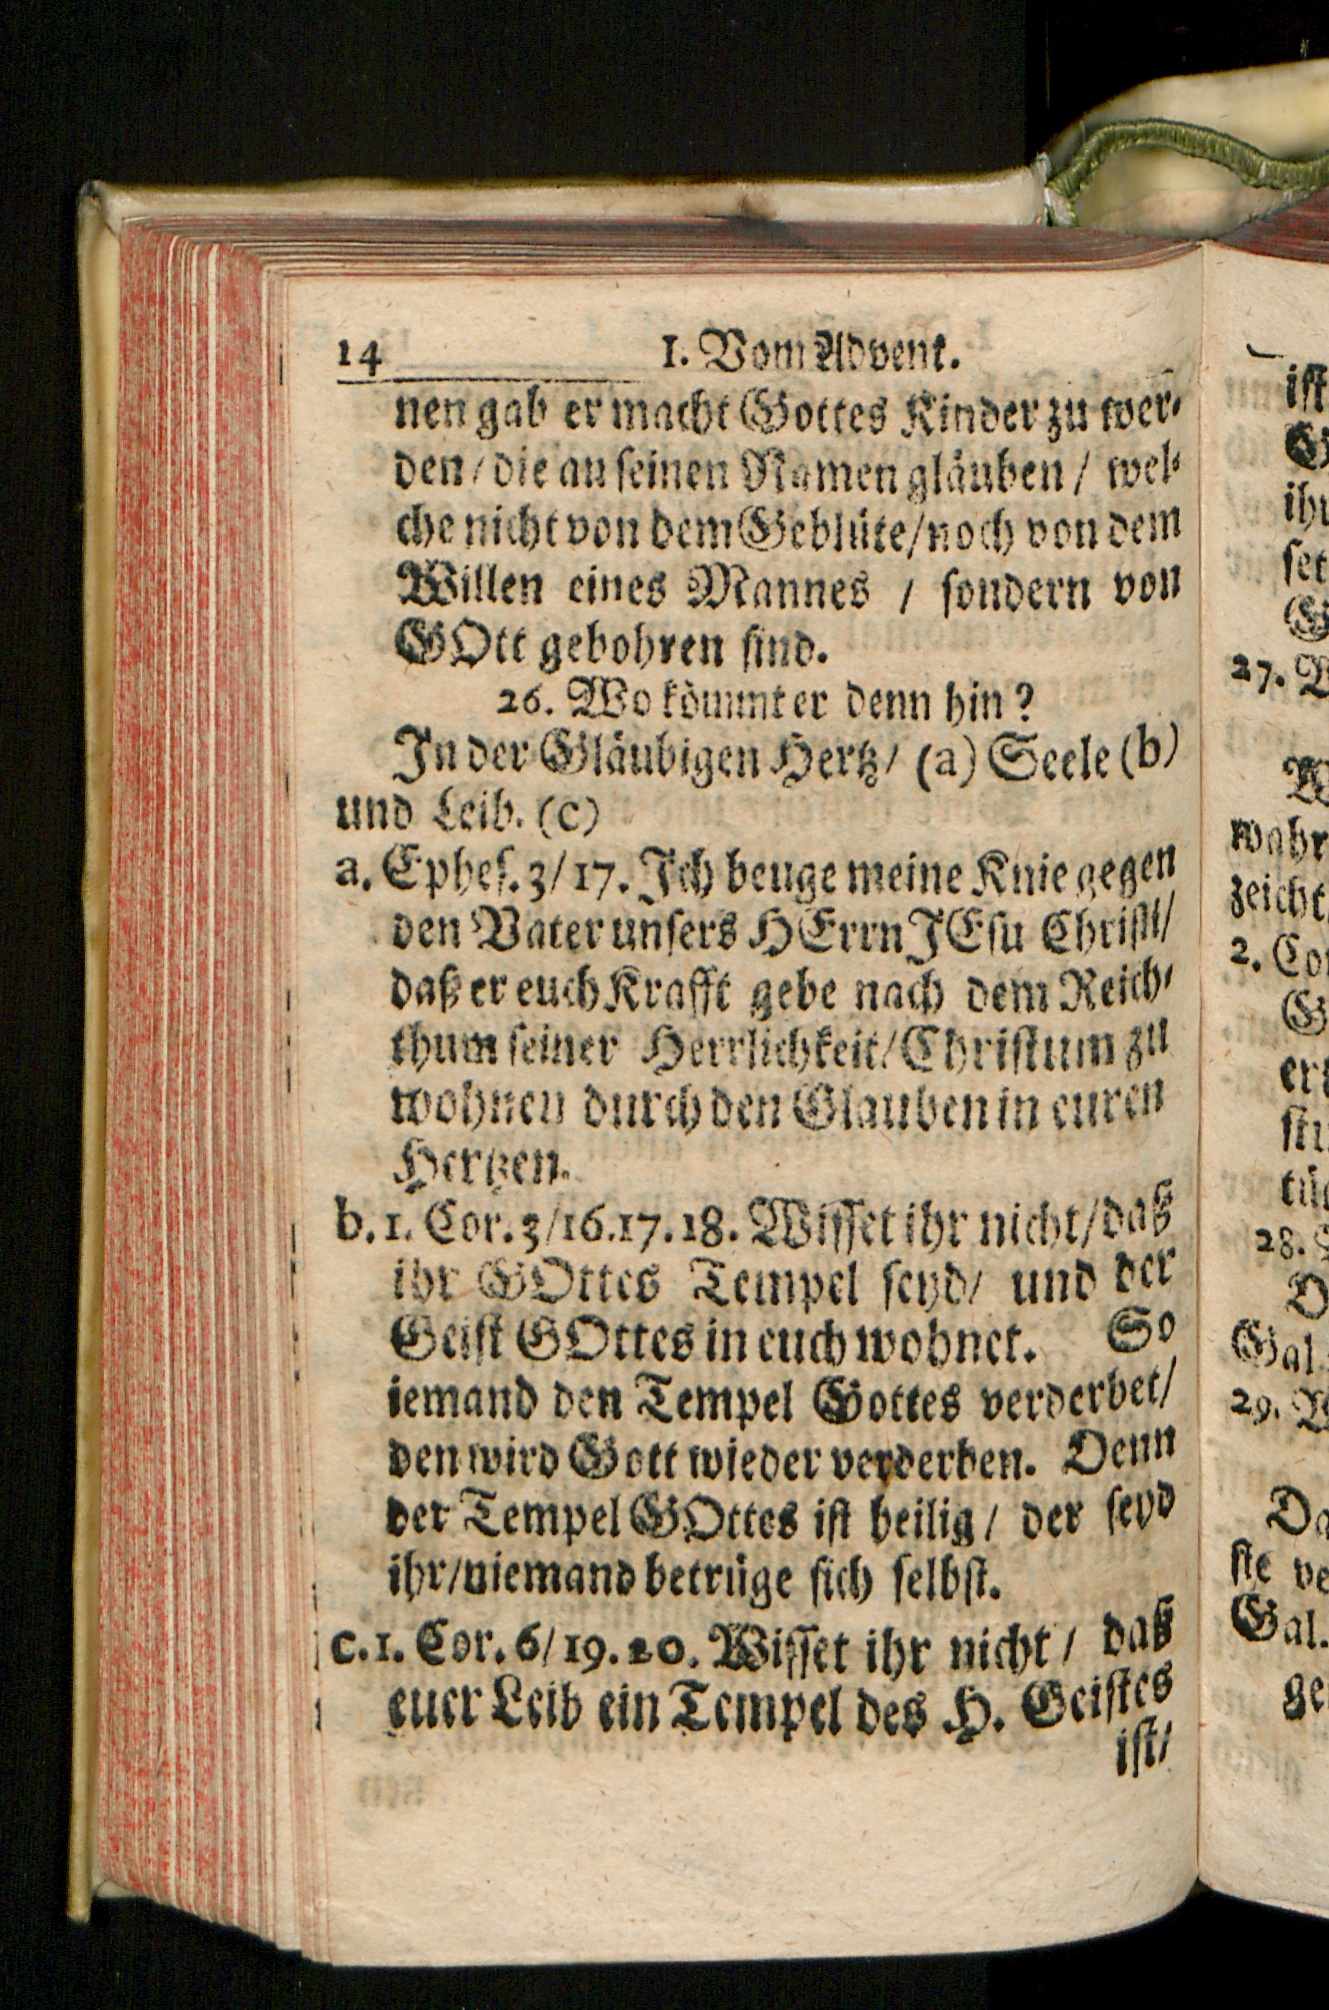 14 I. Vom Advent.
nen gab er macht Gottes Kinder zu wer-
den / die an seinen Namen gläuben / wel-
che nicht von dem Geblüte / noch von dem
Willen eines Mannes / sondern von
GOtt gebohren sind.
26. Wo kömmt er denn hin?
In der Gläubigen Hertz / (a) Seele (b)
und Leib. (c)
a. Ephes. 3/17. Ich beuge meine Knie gegen
den Vater unsers HErrn JEsu Christi /
daß er euch Krafft gebe nach dem Reich-
thum seiner Herrlichkeit / Christum zu
wohnen durch den Glauben in euren
Hertzen.
b. 1. Cor. 3/16.17.18. Wisset ihr nicht / daß
ihr GOttes Tempel seyd / und der
Geist GOttes in euch wohnet. So
iemand den Tempel Gottes verderbet /
den wird Gott wieder verderben. Denn
der Tempel GOttes ist heilig / der seyd
ihr / niemand betrüge sich selbst.
c. 1. Cor. 6/19.20. Wisset ihr nicht / daß
euer Leib ein Tempel des H. Geistes
ist /
ist
27.
wahr
zeicht
2. Cor
28.
Gal.
29.
sie ve
Gal.
ge